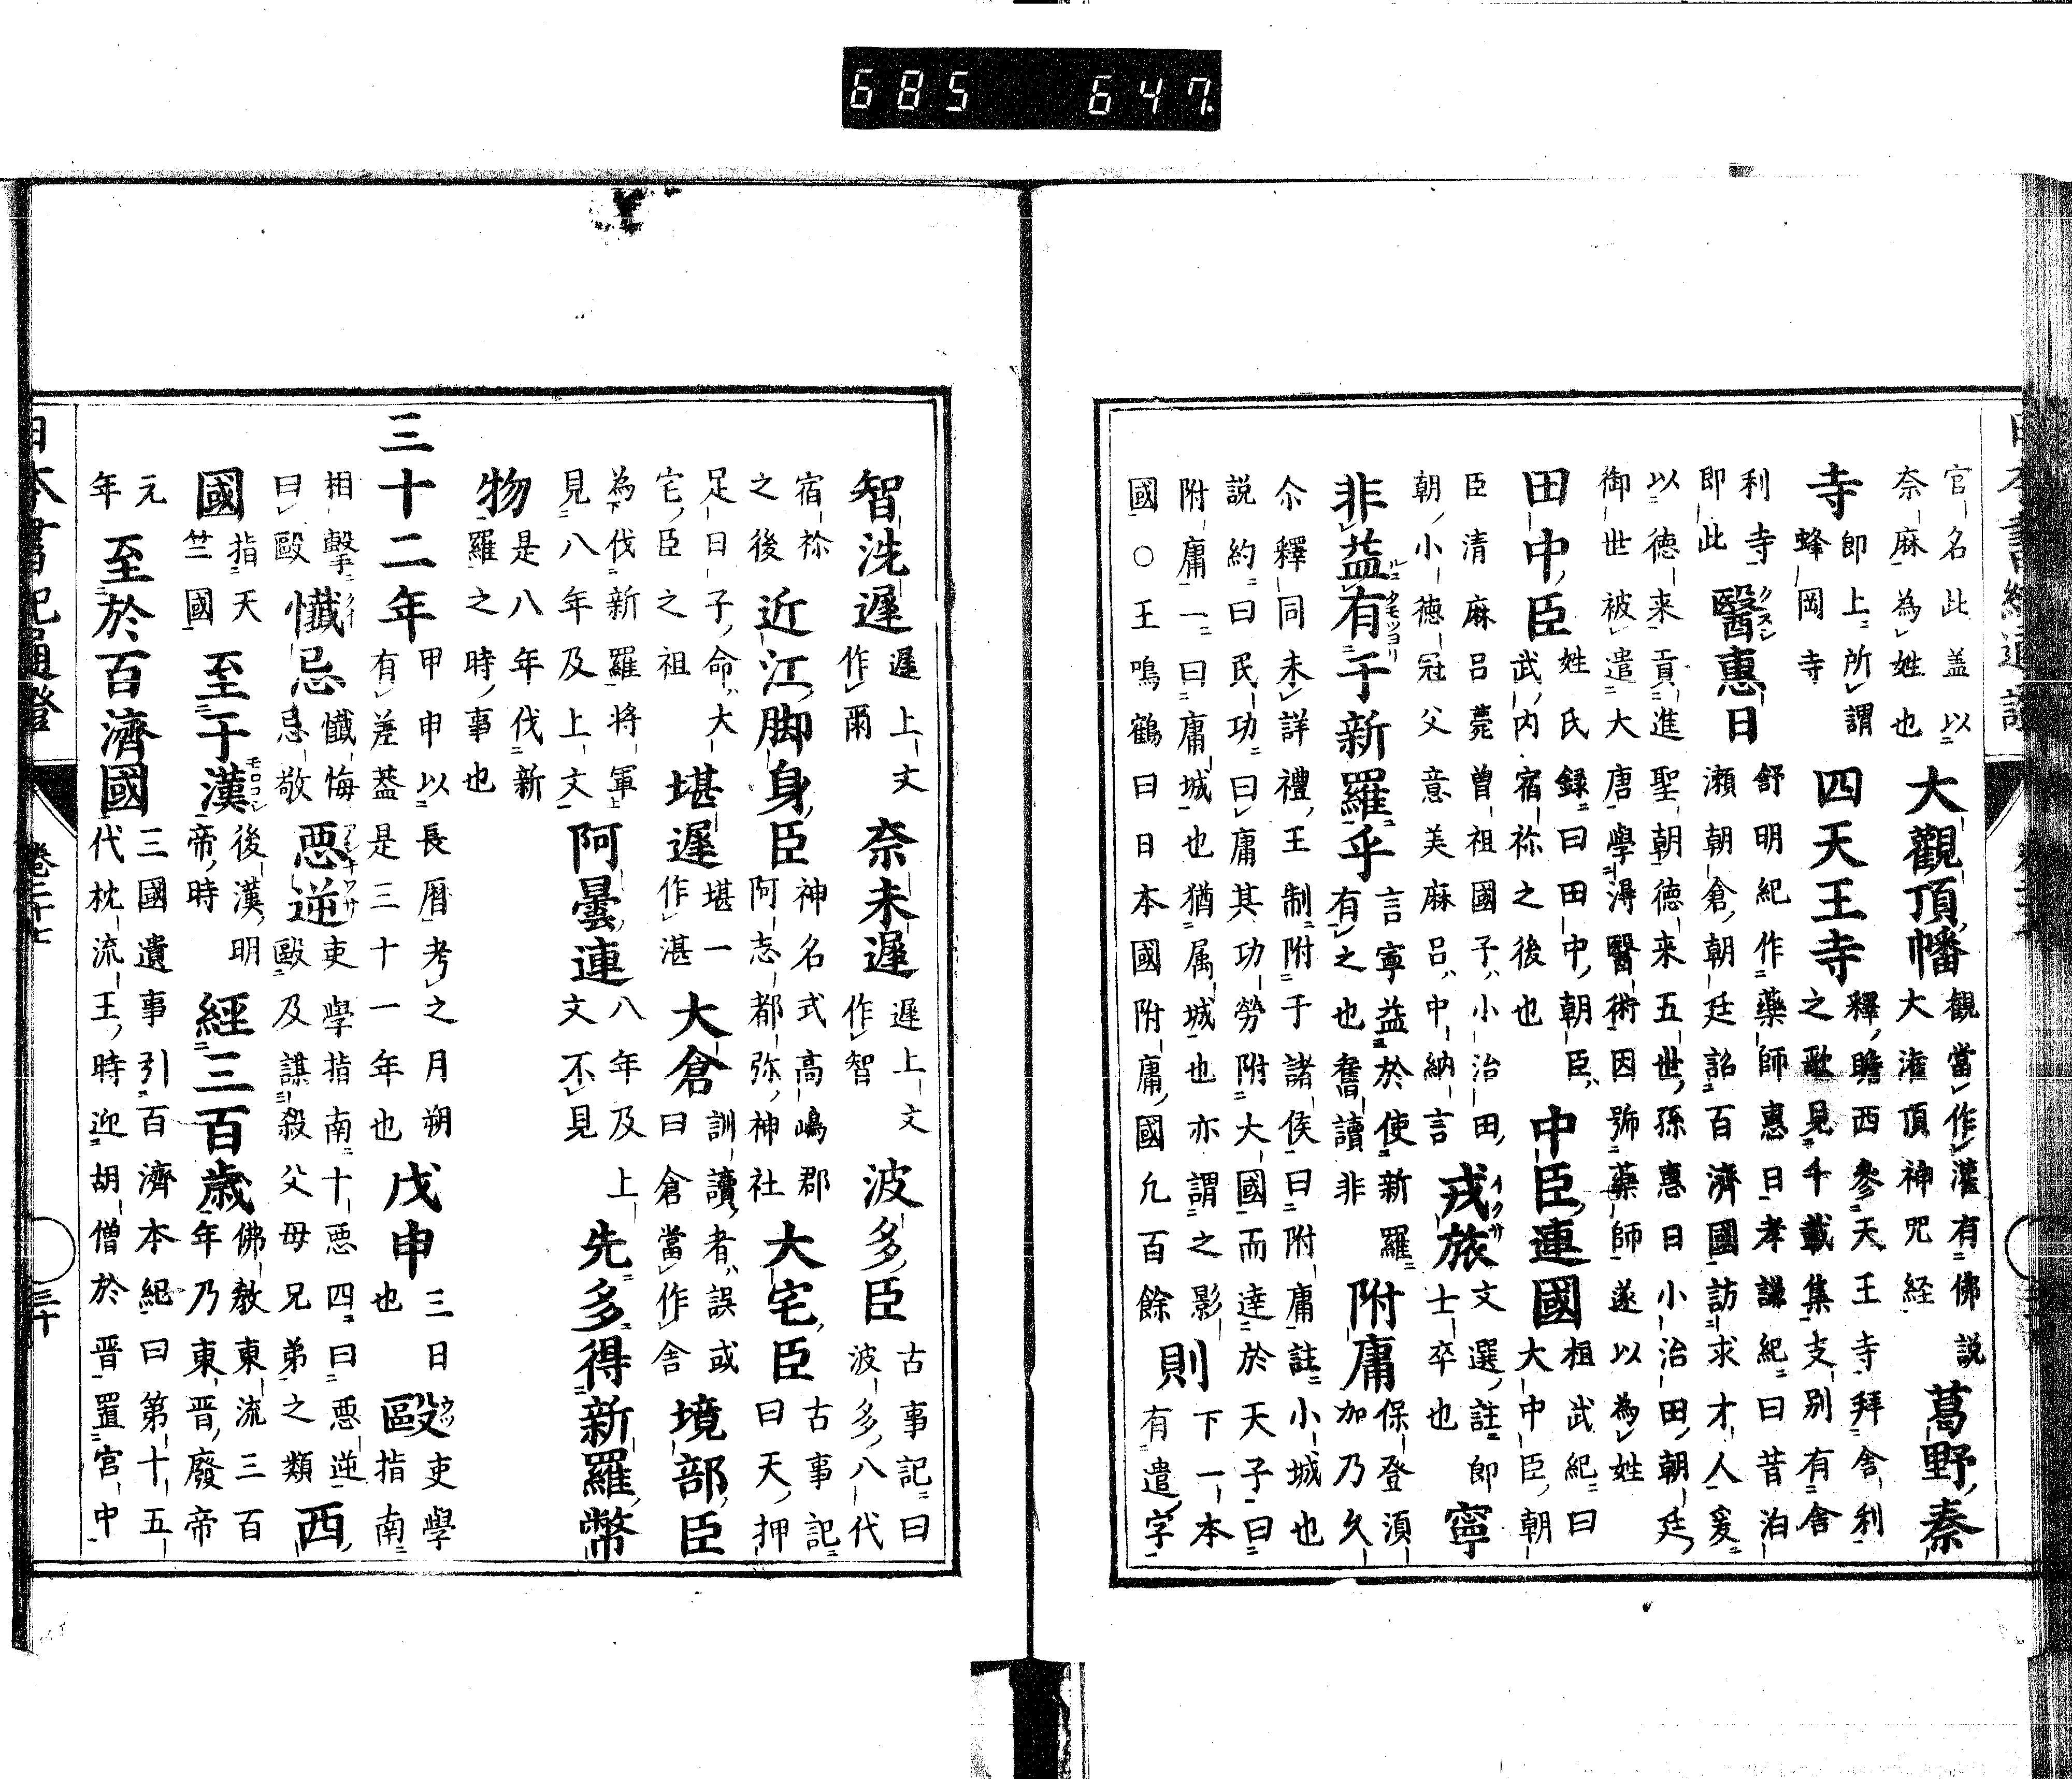 685 647
官名此蓋以
奈麻為姓也
大觀頂幡
觀當作灌有佛説
大灌頂神咒経
葛野秦
寺
即上所謂
蜂岡寺
四天王寺
釋瞻西參天王寺拜舎利
之歌見千載集支別有舎
利寺
即此
醫惠日
クスシ
舒明紀作藥師惠日孝謙紀曰昔泊
瀬朝倉朝廷詔百濟國訪求才人爰
以徳来貢進聖朝徳来五世孫惠日小治田朝廷
御世被遣大唐學得醫術因號藥師遂以為姓
田中臣
姓氏録曰田中朝臣
武内宿祢之後也
中臣連國
祖武紀曰
大中臣朝
臣清麻呂薨曾祖國子小治田
朝小徳冠父意美麻呂中納言
戎旅
イクサ
文選註即
士卒也
寧
非益有于新羅乎
言寧益於使新羅
有之也舊讀非
附庸
保登湏
加乃久
尒釋同未詳禮王制附于諸侯曰附庸註小城也
説約曰民功曰庸其功勞附大國而達於天子曰
附庸一曰庸城也猶属城也亦謂之影
國○王鳴鶴曰日本國附庸國九百餘
則
下一本
有遣字
智洗遲
遲上文
作爾
奈未遲
遲上文
作智
波多臣
古事記曰
波多八代
宿祢
之後
近江脚身臣
神名式高嶋郡
阿志都弥神社
大宅臣
古事記
曰天押
足日子命大
宅臣之祖
堪遲
堪一
作湛
大倉
訓讀者誤或
曰倉當作舎
境部臣
為伐新羅将軍
見八年及上文
阿曇連
八年及上
文不見
先多得新羅幣
物
是八年伐新
羅之時事也
三十二年
甲申以長暦考之月朔
有差葢是三十一年也
戊申
三日
也
毆
吏學
指南
相擊
曰毆
懺忌
懺悔
忌敬
悪逆
吏學指南十悪四曰悪逆
毆及謀殺父母兄弟之類
西
國
指天
竺國
至于漢
モロコシ
後漢明
帝時
經三百歳
佛教東流三百
年乃東晋廢帝
元
年
至於百濟國
三國遺事引百濟本紀曰第十五
代枕流王時迎胡僧於晋置宮中
日本書紀通證
卷二十七
三十